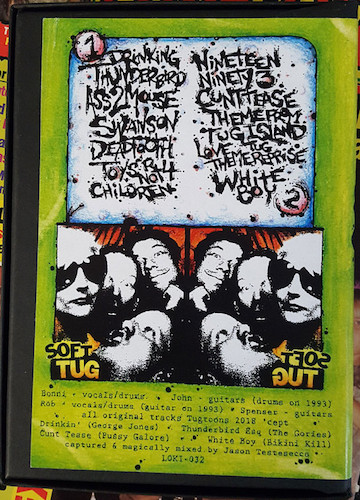 1
DRINKING
THUNDERBIRD
ASS 2 MOUSE
SWANSON
DEADTOOTH
TOYS R 4
NOT
CHILDREN
NINETEEN
NINETY 3
CUNT TEASE
THEME FROM
TUG ISLAND
LOVE TUG
THEME REPRISE
WHITE
BOY
2
SOFT
TUG
SOFT
TUG
Bonni - vocals/drums John - guitars (drums on 1993)
Rob - vocals/drums (guitar on 1993) Spenser - guitars
all original tracks Tugtoons 2018 'cept
Drinkin' (George Jones) Thunderbird Esq (The Gories)
Cunt Tease (Pussy Galore) White Boy (Bikini Kill)
captured & magically mixed by Jason Testasecca
LOKI-032